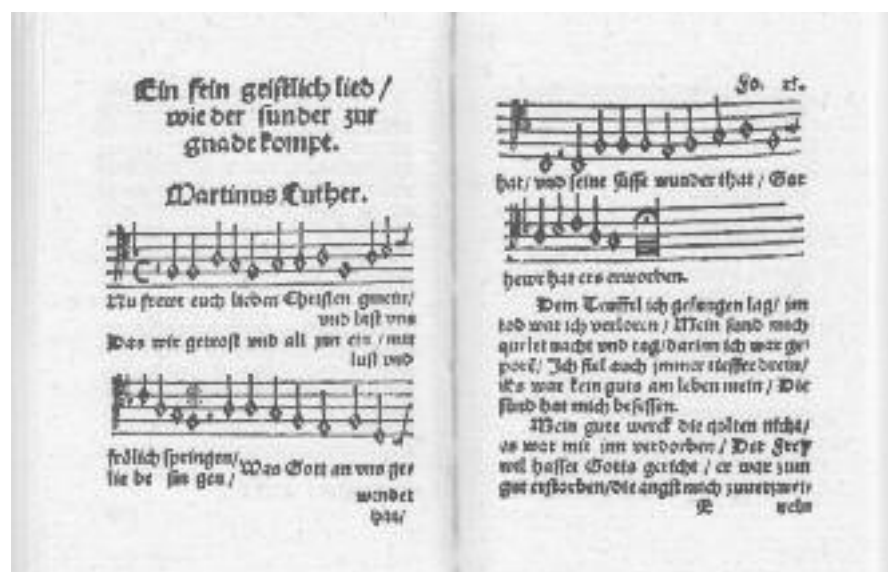 Ein fein geistlich lied /
wie der sunder zur
gnade kompt.
Martinus Luther.
Nu frewt euch lieben Christen gmein/
und last uns
Das wir getrost und all ynn ein / mit
lust und
frölich springen/
lie be sin gen /
Was Gott an uns ge
wendet
hat/
Fo.
hat/ und seine süsse wunder that / Gar
hewr hat ers erworben.
Dem Teuffel ich gefangen lag/ im
tod war ich verloren / Mein sund mich
quelet nacht und tag/darinn ich war ge
porē/ Ich fiel auch jmmer tieffer drein/
es war kein guts am leben mein / Die
sünd hat mich besessen.
Mein gute werck die golten nicht/
es war mit jnn verdorben / Der frey
wil hasset Gotts gericht / er war zum
gut erstorben/die angst mich